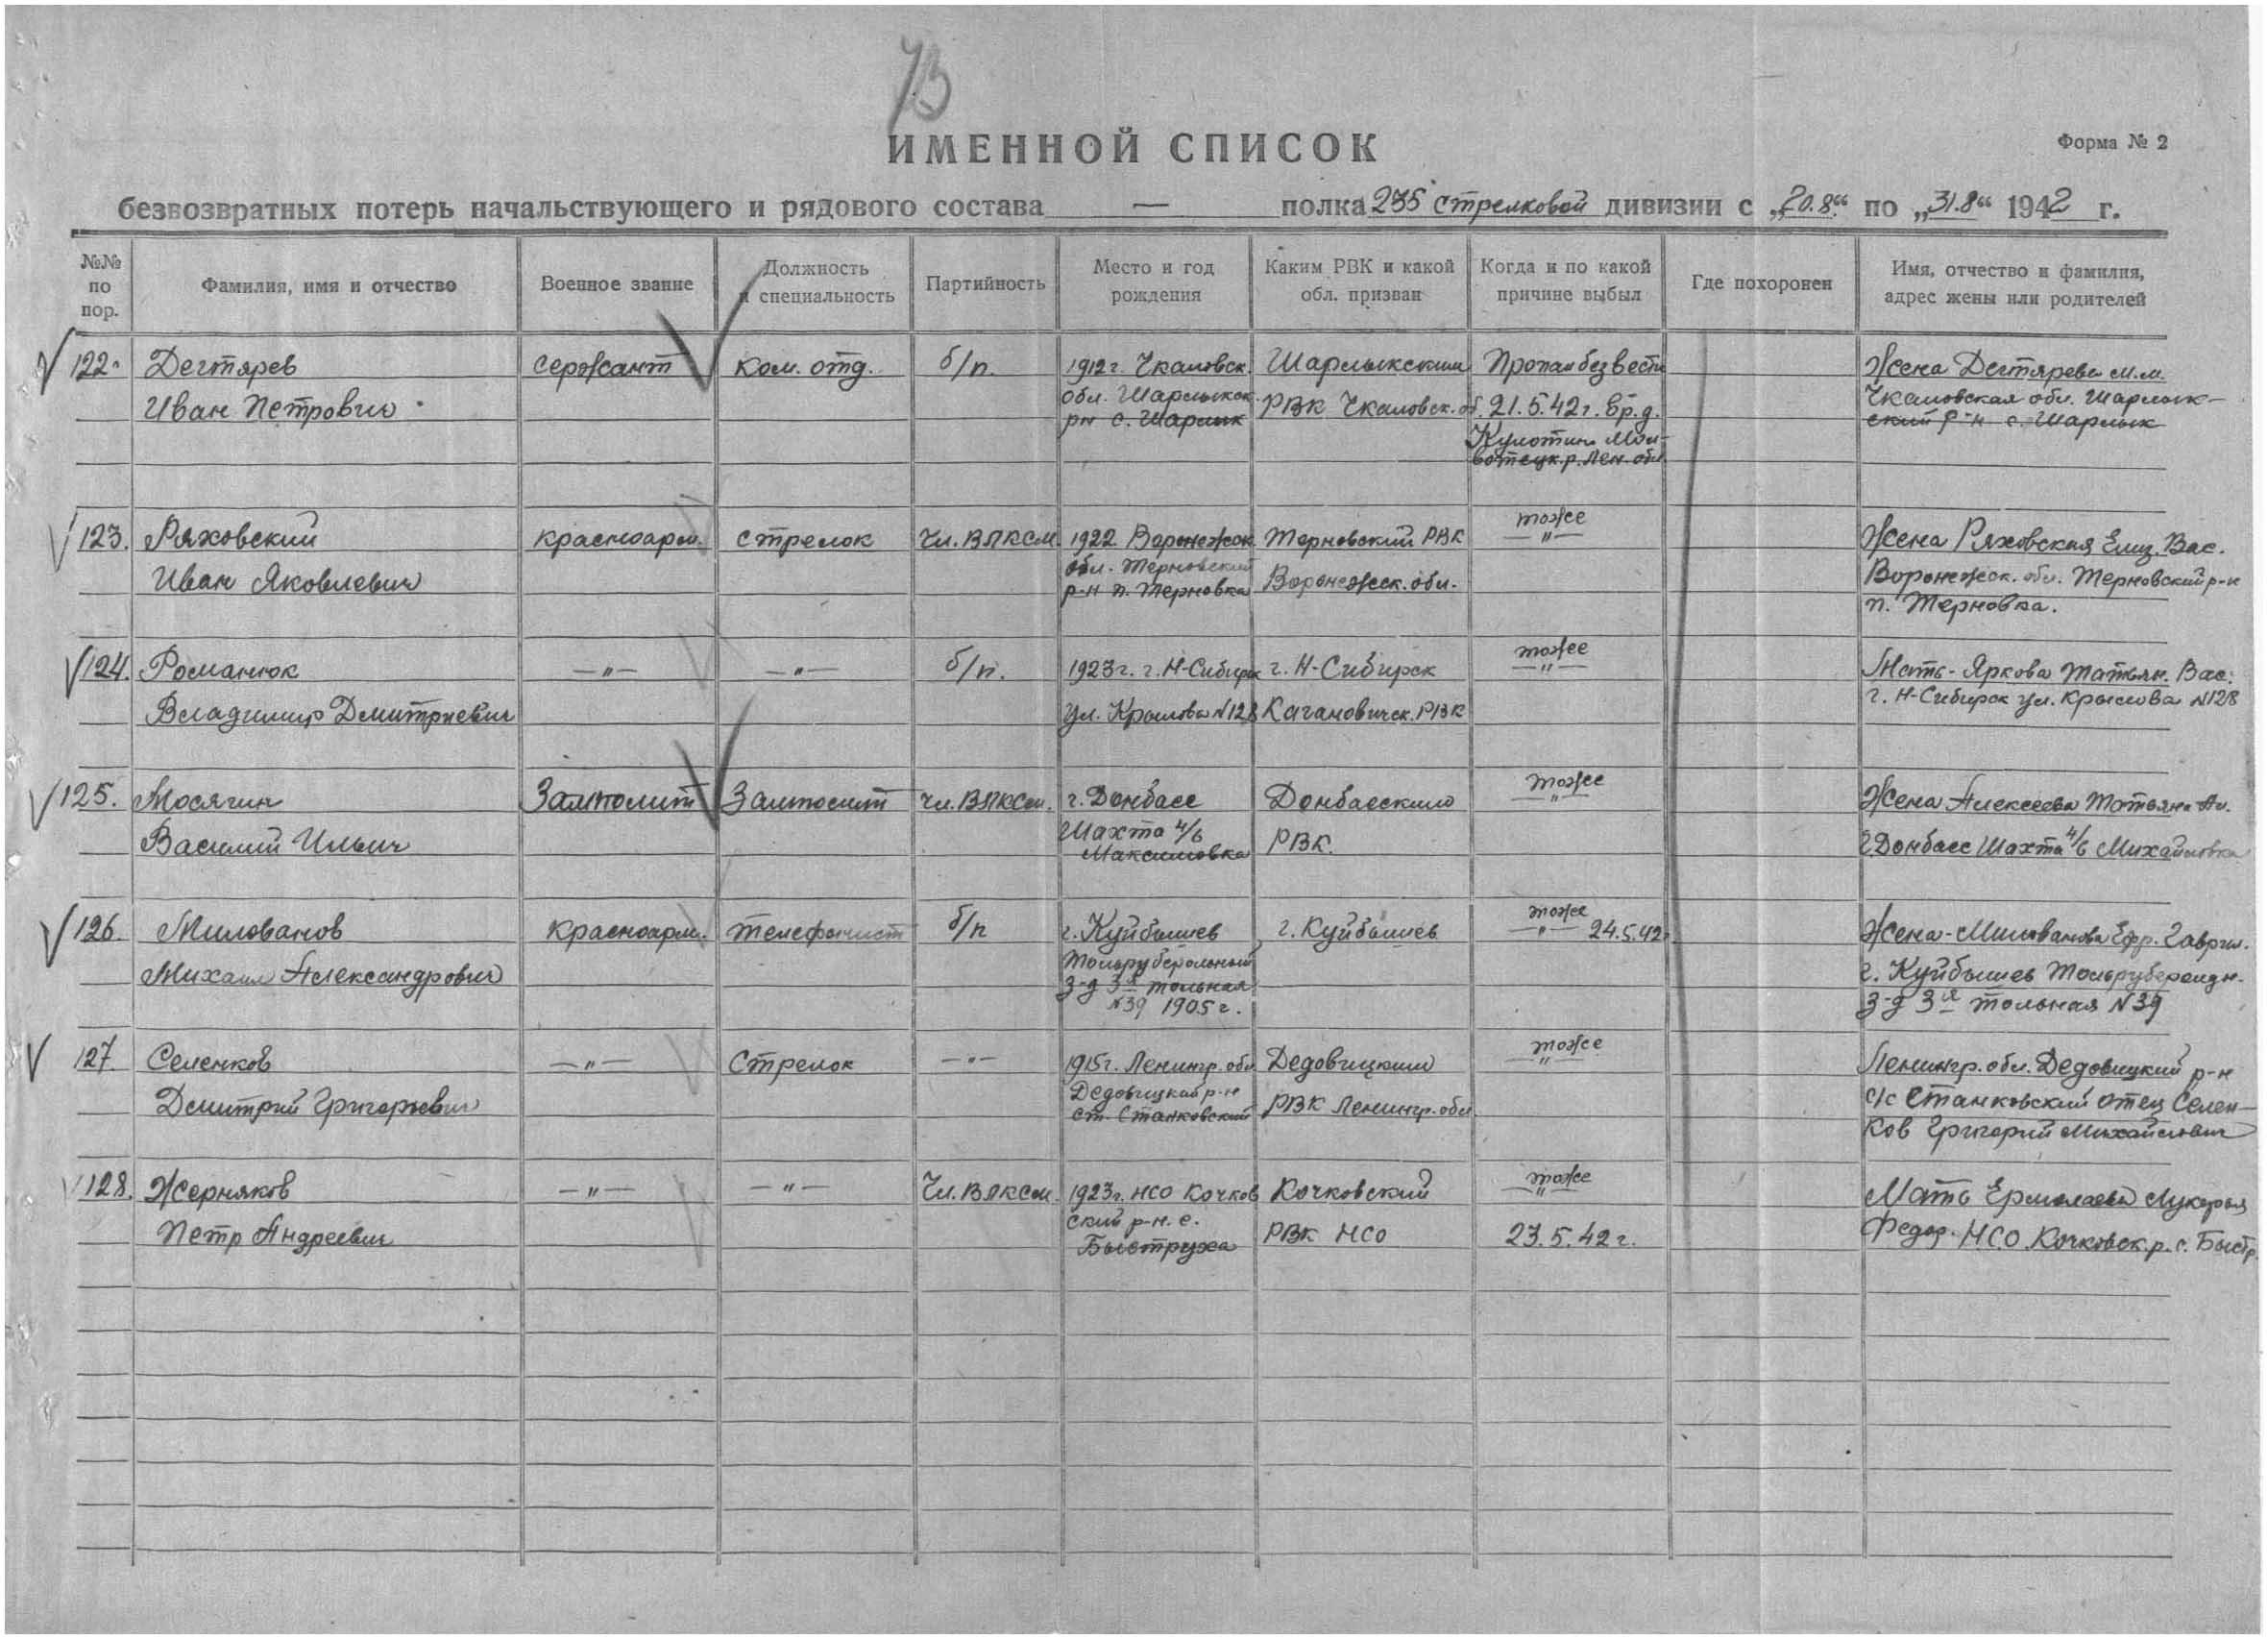 73
ИМЕННОЙ СПИСОК
Форма № 2
безвозвратных потерь начальствующего и рядового состава — полка 235 стрелковой дивизии с „20.8“ по „31.8“ 1942 г.
№№ по пор.
Фамилия, имя и отчество
Военное звание
Должность и специальность
Партийность
Место и год рождения
Каким РВК и какой обл. призван
Когда и по какой причине выбыл
Где похоронен
Имя, отчество и фамилия, адрес жены или родителей
122. Дегтярев сержант Ком. отд. б/п. 1912 г. Чкаловск. Шарлыкский Пропал без вести Жена Дегтярева М.М.
Иван Петрович обл. Шарлыкск. РВК Чкаловск. об. 21.5.42 г. в р.д. Чкаловская обл. Шарлык-
рн с. Шарлык ский р-н с. Шарлык
Лен. обл.
123. Ряховский красноарм. стрелок Чл. ВЛКСМ 1922 Воронежск Терновский РВК тоже —„— Жена Ряховская Елиз. Вас.
Иван Яковлевич обл. Терновский Воронежск. обл. Воронежск. обл. Терновский р-н
р-н п. Терновка п. Терновка.
124. Романюк —„— —„— б/п. 1923 г. г. Н-Сибирск г. Н-Сибирск тоже —„— Мать - Яркова Татьян. Вас.
Владимир Дмитриевич ул. Крылова N 128 Кагановичск. РВК г. Н-Сибирск ул. Крылова N 128
125. Мосягин Замполит Замполит чл. ВЛКСМ. г. Донбасс Донбасский тоже —„— Жена Алексеева Татьяна Ал.
Василий Ильич Шахта 4/6 РВК. г. Донбасс Шахта 4/6 Михайловка
Максимовка
126. Милованов красноарм. телефонист б/п г. Куйбышев г. Куйбышев тоже —„— 24.5.42г Жена - Милованова Ефр. Гаврил.
Михаил Александрович г. Куйбышев Тольрубероидн.
з-д 3я тольная з-д 3я тольная N 39
N 39 1905 г.
127. Селенков —„— Стрелок —„— 1915 г. Ленингр. обл Дедовицкий тоже —„— Ленингр. обл. Дедовицкий р-н
Дмитрий Григорьевич Дедовицкий р-н РВК Ленингр. обл с/с Станковский отец Селен-
ст. Станковский ков Григорий Михайлович
128. Жерняков —„— —„— Чл. ВЛКСМ. 1923 г. НСО Кочков Кочковский тоже —„— Мать Ермолаева Лукерья
Петр Андреевич ский р-н. с. РВК НСО 23.5.42 г. Федор. НСО Кочковск. р. с. Быстр.
Быструха